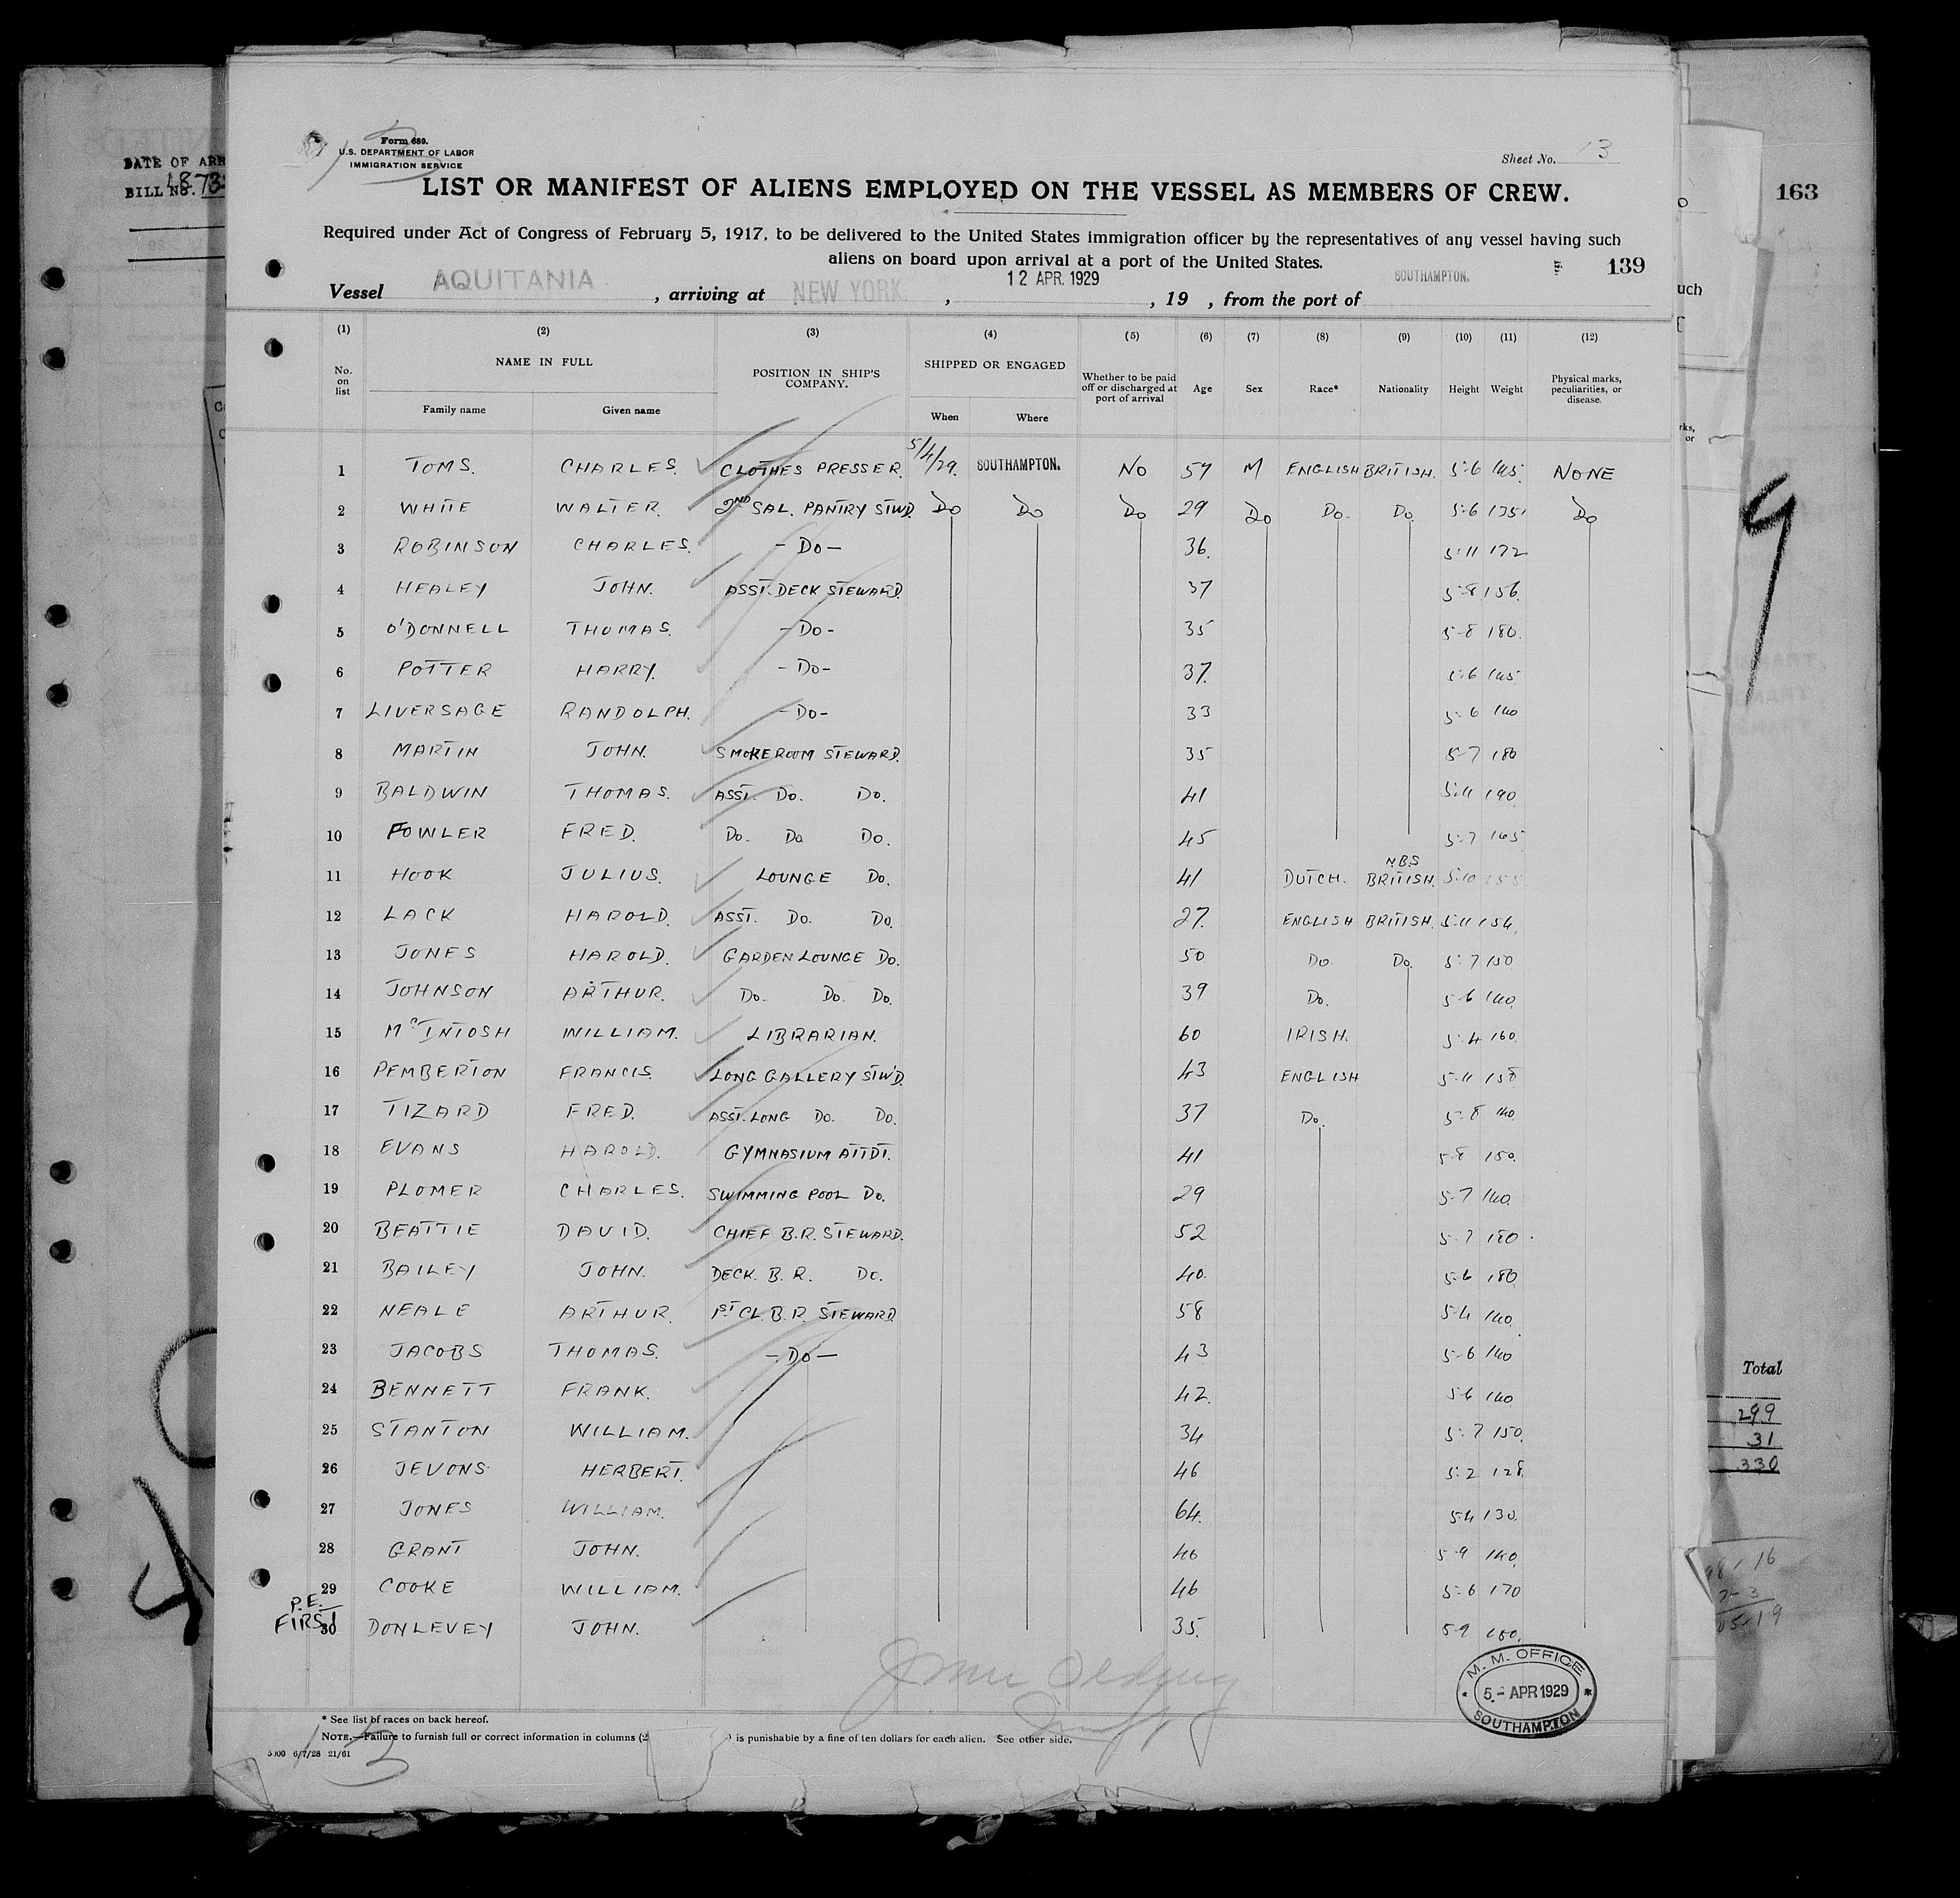 DATE OF ARR
BILL No. 1873
163
Form 680.
U.S. DEPARTMENT OF LABOR
IMMIGRATION SERVICE
Sheet No. 13
LIST OR MANIFEST OF ALIENS EMPLOYED ON THE VESSEL AS MEMBERS OF CREW.
Required under Act of Congress of February 5, 1917, to be delivered to the United States immigration officer by the representatives of any vessel having such
aliens on board upon arrival at a port of the United States.
139
Vessel AQUITANIA, arriving at NEW YORK, 12 APR. 1929, 19 , from the port of SOUTHAMPTON.
(1) (2) (3) (4) (5) (6) (7) (8) (9) (10) (11) (12)
No. on list NAME IN FULL POSITION IN SHIP'S COMPANY. SHIPPED OR ENGAGED Whether to be paid off or discharged at port of arrival Age Sex Race* Nationality Height Weight Physical marks, peculiarities, or disease.
Family name Given name When Where
1 TOMS. CHARLES. CLOTHES PRESSER. 5/4/29. SOUTHAMPTON. NO 57 M ENGLISH BRITISH. 5-6 145. NONE
2 WHITE WALTER. 2ND SAL. PANTRY STWD. Do Do Do 29 Do Do. Do. 5-6 135 Do
3 ROBINSON CHARLES. -Do- 36. 5-11 172
4 HEALEY JOHN. ASST. DECK STEWARD. 37 5-8 156.
5 O'DONNELL THOMAS. -Do- 35 5-8 180.
6 POTTER HARRY. -Do- 37. 5-6 145
7 LIVERSAGE RANDOLPH. -Do- 33 5-6 140
8 MARTIN JOHN. SMOKEROOM STEWARD. 35 5-7 180
9 BALDWIN THOMAS. ASST. Do. Do. 41 5-11 190
10 FOWLER FRED. Do. Do Do. 45 5-7 165
11 HOOK JULIUS. LOUNGE Do. 41 DUTCH. N.B.S BRITISH. 5-10 155
12 LACK HAROLD. ASST. Do. Do. 27. ENGLISH BRITISH. 5-11 154.
13 JONES HAROLD. GARDEN LOUNGE Do. 50 Do. Do. 5-7 150
14 JOHNSON ARTHUR. Do. Do. Do. 39 Do. 5-6 140.
15 McINTOSH WILLIAM. LIBRARIAN. 60 IRISH. 5-4 160.
16 PEMBERTON FRANCIS. LONG GALLERY STW'D. 43 ENGLISH 5-11 158
17 TIZARD FRED. ASST. LONG Do. Do. 37 Do. 5-8 140.
18 EVANS HAROLD. GYMNASIUM ATTDT. 41 5-8 150.
19 PLOMER CHARLES. SWIMMING POOL Do. 29 5-7 140.
20 BEATTIE DAVID. CHIEF B.R. STEWARD. 52 5-7 180.
21 BAILEY JOHN. DECK. B.R. Do. 40. 5-6 180.
22 NEALE ARTHUR. 1ST CL. B.R. STEWARD 58 5-4 140.
23 JACOBS THOMAS. -Do- 43 5-6 140
24 BENNETT FRANK. 42. 5-6 140
25 STANTON WILLIAM. 34 5-7 150.
26 JEVONS HERBERT. 46 5-2 128.
27 JONES WILLIAM. 64. 5-4 130.
28 GRANT JOHN. 46 5-9 140.
29 COOKE WILLIAM. 46 5-6 170
P.E. FIRST
30 DONLEVEY JOHN. 35. 5-9 160.
M. M. OFFICE
5 - APR 1929
SOUTHAMPTON
* See list of races on back hereof.
NOTE.—Failure to furnish full or correct information in columns (2 ) is punishable by a fine of ten dollars for each alien. See other side.
5000 6/7/28 21/61
13
Total
299
31
330